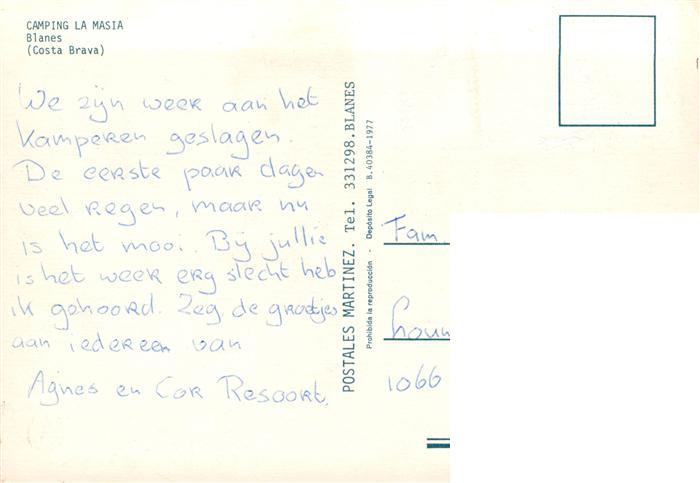 CAMPING LA MASIA
Blanes
(Costa Brava)
We zijn weer aan het
kamperen geslagen.
De eerste paar dagen
veel regen, maar nu
is het mooi. Bij jullie
is het weer erg slecht heb
ik gehoord. Zeg de groetjes
aan iedereen van
Agnes en Cor Resoort.
POSTALES MARTINEZ. Tel. 331298.BLANES
Prohibida la reproducción - Depósito Legal B.40384-1977
Fam.
1066